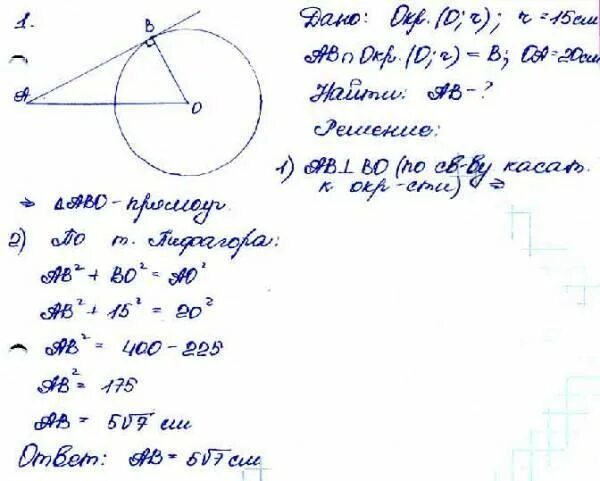 1.
B
A
O
Дано: Окр. (O; r); r = 15см
AB ∩ Окр. (O; r) = B; OA = 20см
Найти: AB - ?
Решение:
1) AB ⊥ BO (по св-ву касат.
к окр-сти) ⇒
⇒ △ABO - прямоуг.
2) По т. Пифагора:
AB² + BO² = AO²
AB² + 15² = 20²
AB² = 400 - 225
AB² = 175
AB = 5√7 см
Ответ: AB = 5√7 см